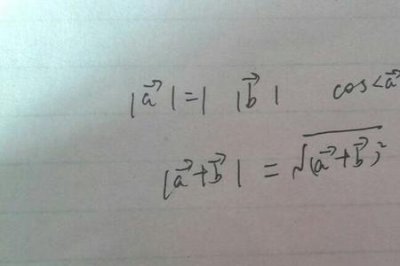 |a⃗|=| |b⃗| cos<a⃗
|a⃗+b⃗| = √(a⃗+b⃗)²